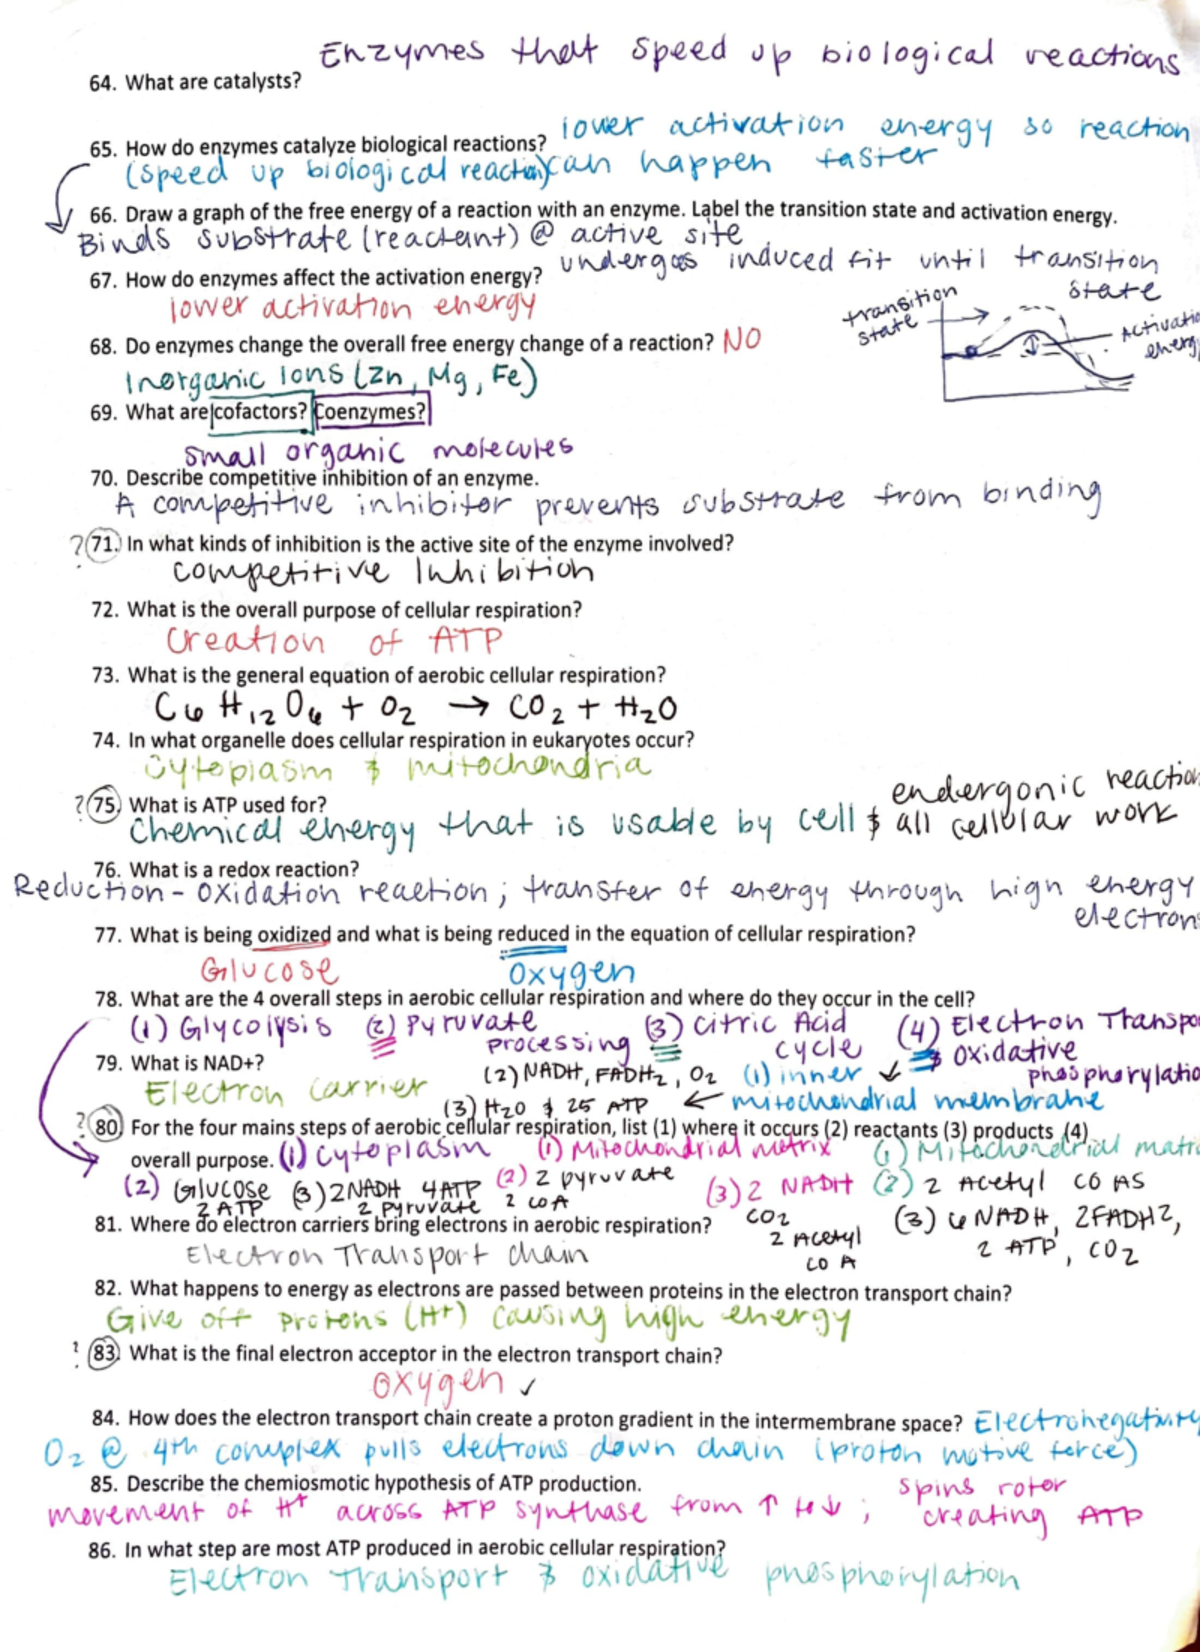 Enzymes that speed up biological reactions
64. What are catalysts?
65. How do enzymes catalyze biological reactions? lower activation energy so reaction
(speed up biological reaction) can happen faster
66. Draw a graph of the free energy of a reaction with an enzyme. Label the transition state and activation energy.
Binds substrate (reactant) @ active site
67. How do enzymes affect the activation energy? undergoes induced fit until transition
state
lower activation energy
transition
state
Activatio
energy
68. Do enzymes change the overall free energy change of a reaction? NO
Inorganic Ions (Zn, Mg, Fe)
69. What are cofactors? Coenzymes?
small organic molecules
70. Describe competitive inhibition of an enzyme.
A competitive inhibitor prevents substrate from binding
? 71. In what kinds of inhibition is the active site of the enzyme involved?
competitive Inhibition
72. What is the overall purpose of cellular respiration?
Creation of ATP
73. What is the general equation of aerobic cellular respiration?
C6 H12 O6 + O2 → CO2 + H2O
74. In what organelle does cellular respiration in eukaryotes occur?
Cytoplasm & mitochondria
endergonic reaction
? 75. What is ATP used for?
Chemical energy that is usable by cell & all cellular work
76. What is a redox reaction?
Reduction - oxidation reaction; transfer of energy through high energy
electrons
77. What is being oxidized and what is being reduced in the equation of cellular respiration?
Glucose Oxygen
78. What are the 4 overall steps in aerobic cellular respiration and where do they occur in the cell?
(1) Glycolysis (2) Pyruvate processing (3) Citric Acid cycle (4) Electron Transpo
& oxidative phosphorylatio
79. What is NAD+?
Electron carrier
(2) NADH, FADH2, O2 (1) inner ↓
(3) H2O & 25 ATP ← mitochondrial membrane
? 80. For the four mains steps of aerobic cellular respiration, list (1) where it occurs (2) reactants (3) products (4)
overall purpose. (1) Cytoplasm (1) Mitochondrial matrix (1) Mitochondrial matri
(2) Glucose 2 ATP (3) 2NADH 4ATP 2 pyruvate (2) 2 pyruvate 2 coA (3) 2 NADH CO2 2 Acetyl CO A (2) 2 Acetyl CO AS
(3) 6 NADH, 2FADH2,
2 ATP, CO2
81. Where do electron carriers bring electrons in aerobic respiration?
Electron Transport chain
82. What happens to energy as electrons are passed between proteins in the electron transport chain?
Give off protons (H+) causing high energy
? 83. What is the final electron acceptor in the electron transport chain?
Oxygen ✓
84. How does the electron transport chain create a proton gradient in the intermembrane space? Electronegativity
O2 @ 4th complex pulls electrons down chain (proton motive force)
85. Describe the chemiosmotic hypothesis of ATP production.
movement of H+ across ATP synthase from ↑ to ↓ ; spins rotor
creating ATP
86. In what step are most ATP produced in aerobic cellular respiration?
Electron Transport & oxidative phosphorylation